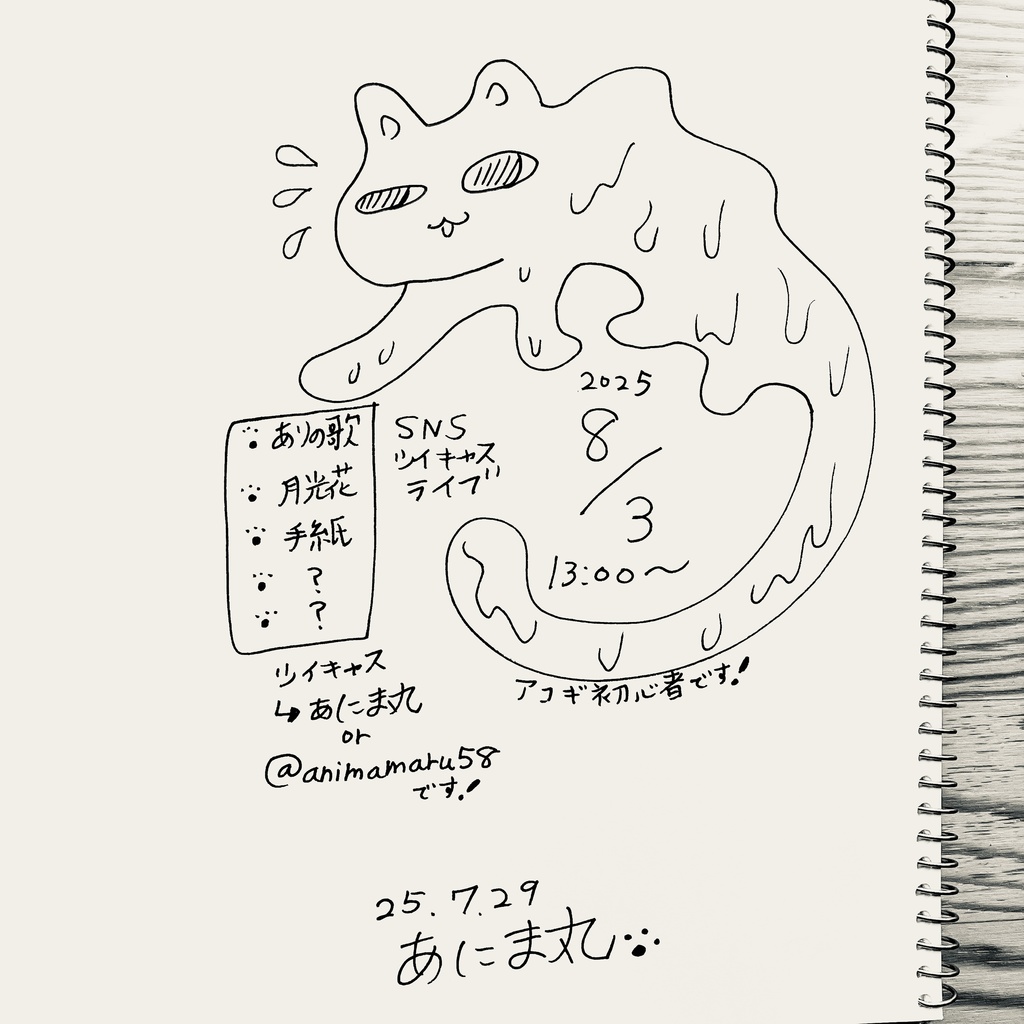 2025
8/3
13:00〜
SNS
ツイキャス
ライブ
ありの歌
月光花
手紙
?
?
ツイキャス
↳ あにま丸
or
@animamaru58
です!
アコギ初心者です!
25.7.29
あにま丸